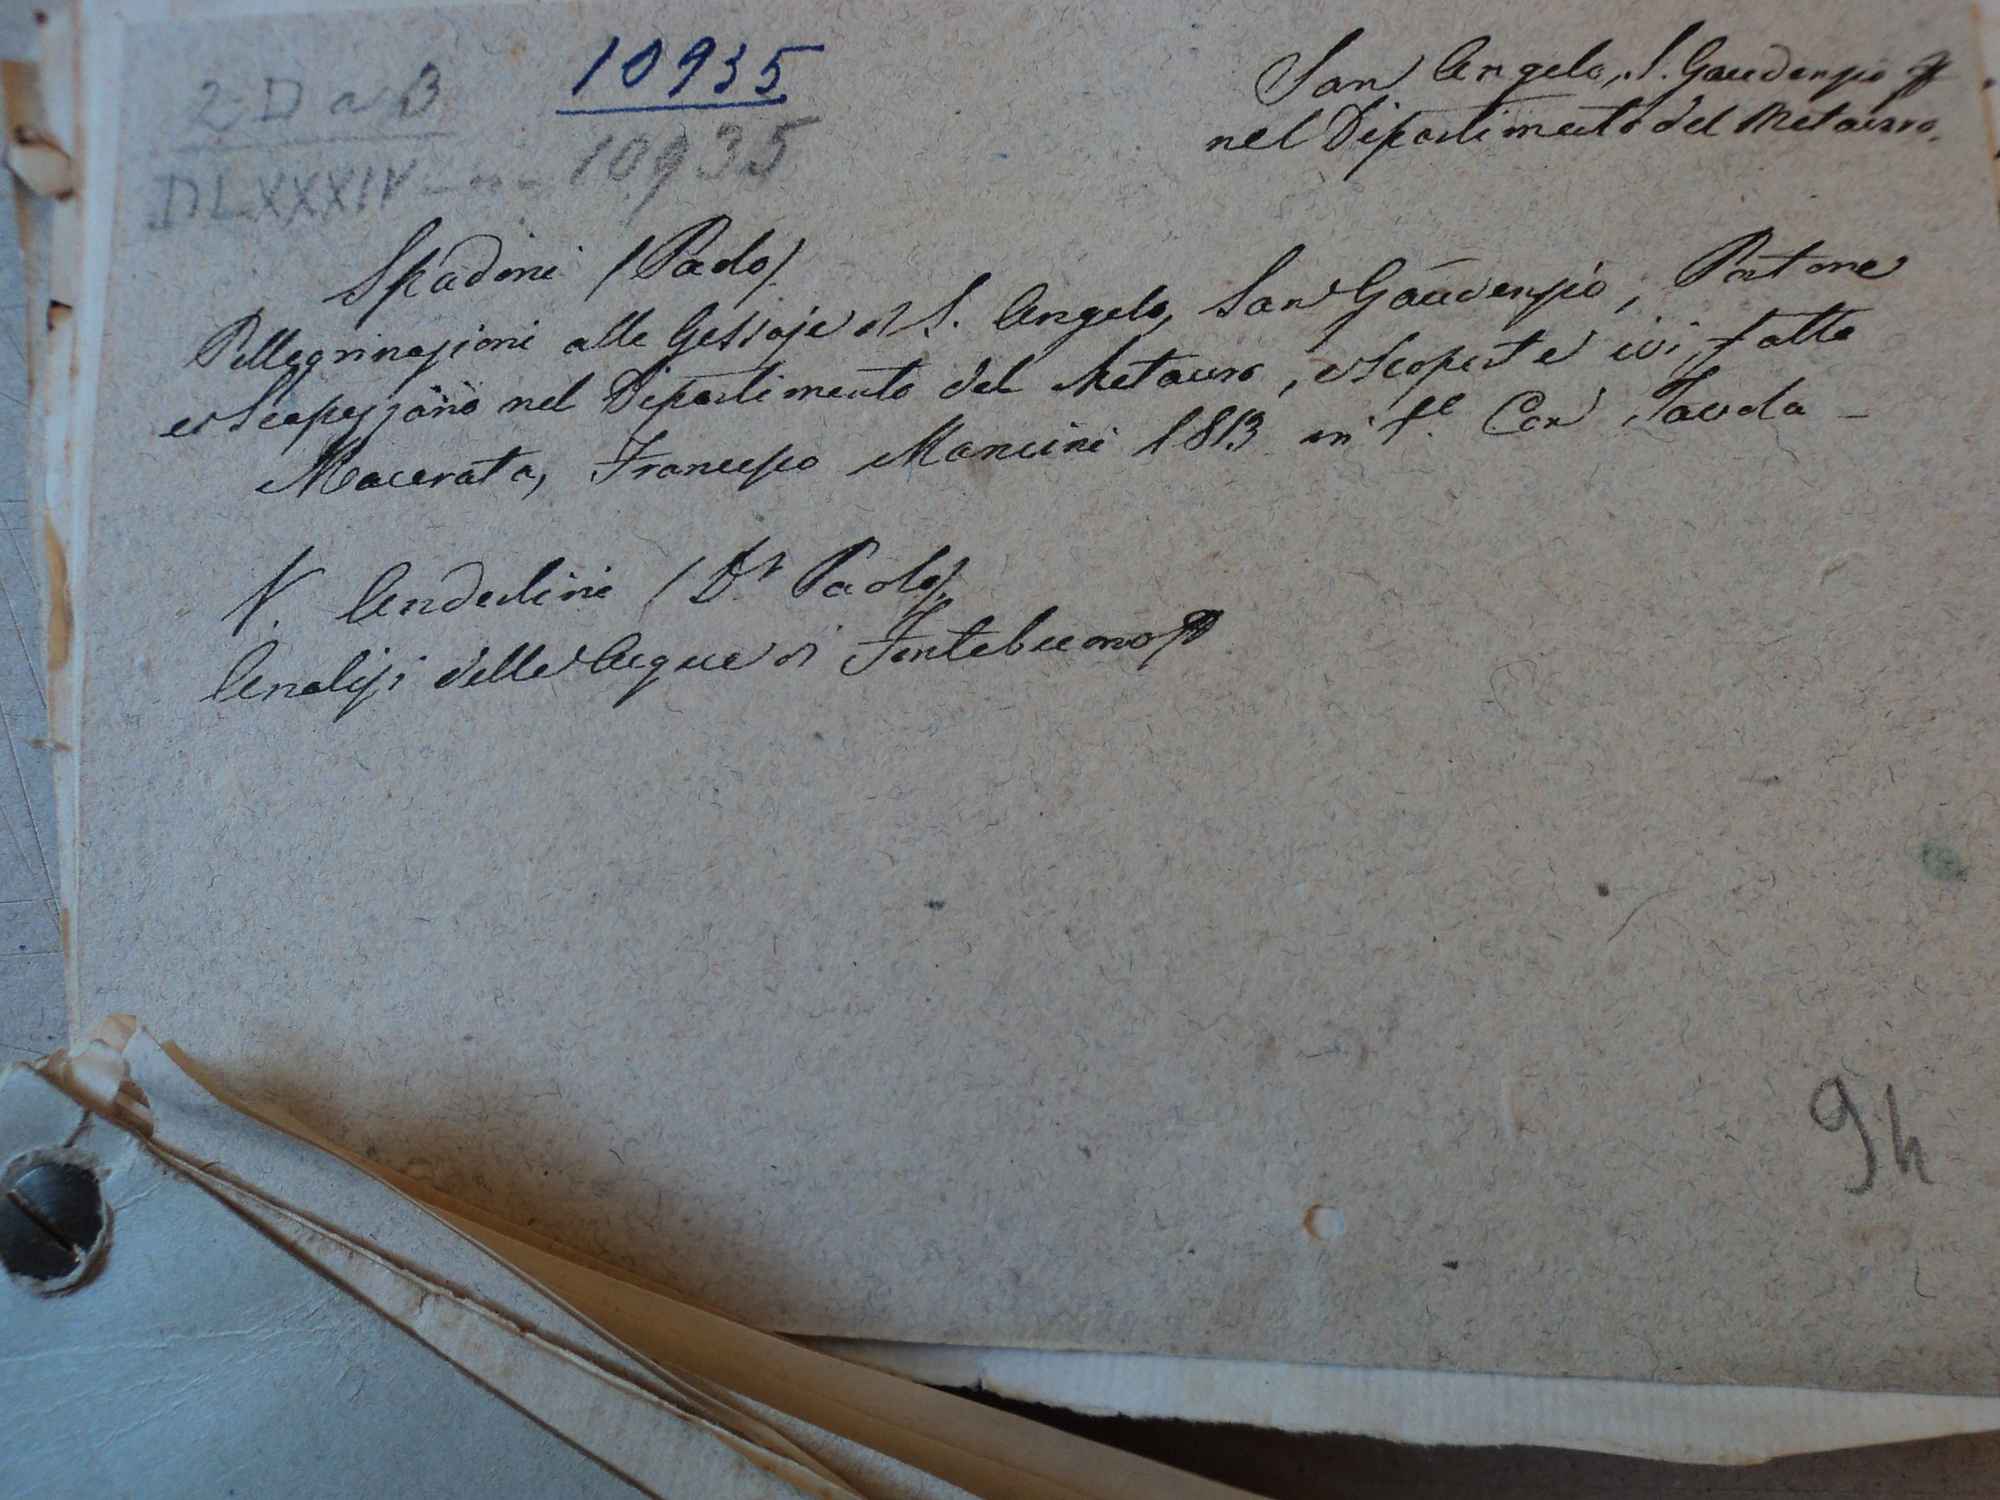 2-D a B
10935
DLXXXIV - n - 10935
San Angelo, S. Gaudenzio
nel Dipartimento del Metauro.
Spadoni (Paolo)
Pellegrinazioni alle Gessaje di S. Angelo, San Gaudenzio, Pontone
e Scapezzano nel Dipartimento del Metauro, e Scoperte ivi fatte
Macerata, Francesco Mancini 1813 in f.º Con Tavola -
V. Anderlini (Dr Paolo)
Analisi delle Acque di Fontebuono
94